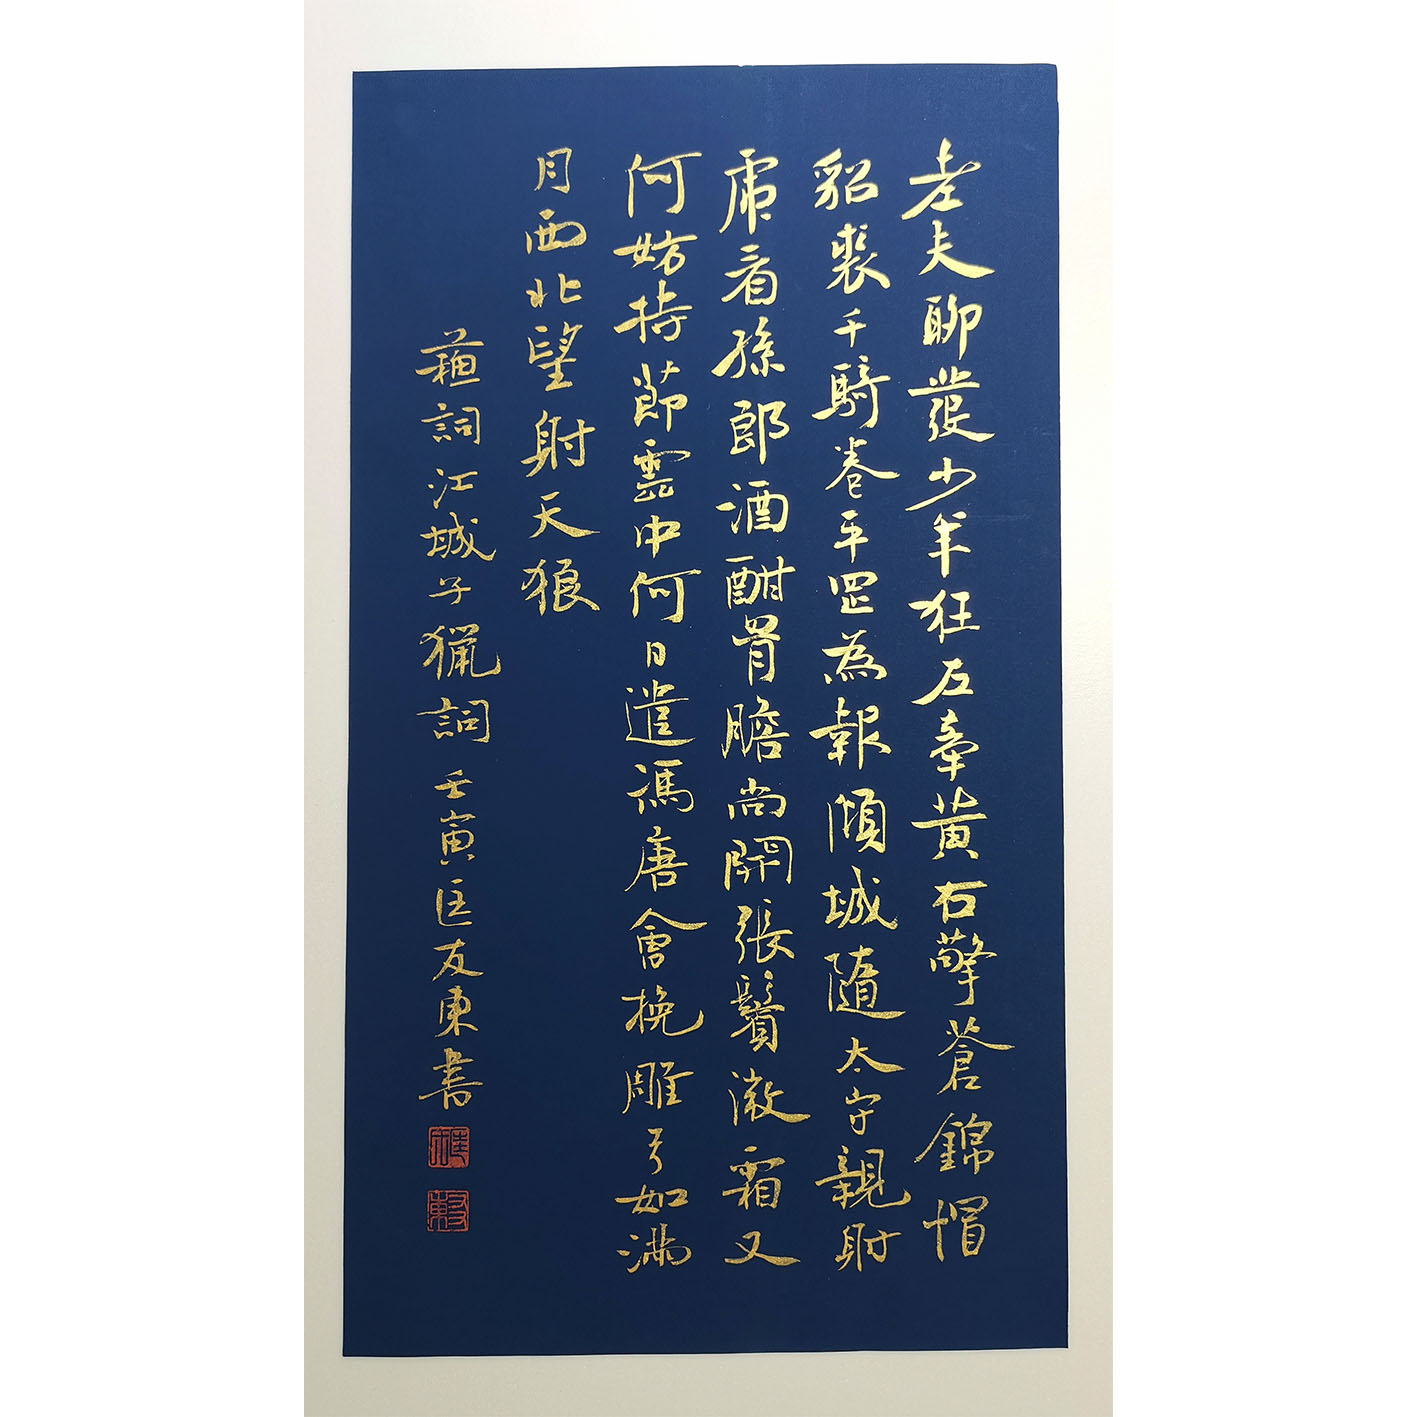 老夫聊發少年狂左牽黃右擎蒼錦帽
貂裘千騎卷平罡為報傾城隨太守親射
虎看孫郎酒酣胷膽尚開張鬢微霜又
何妨持節雲中何日遣馮唐會挽雕弓如滿
月西北望射天狼
蘓詞江城子獵詞壬寅匡友東書